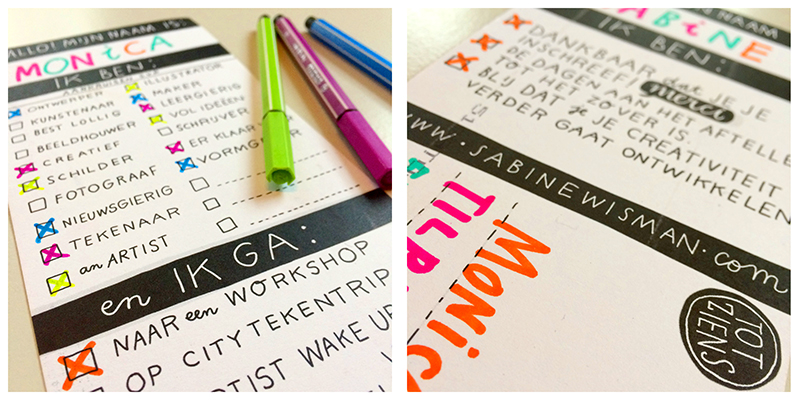 HALLO! MIJN NAAM IS:
MONiCA
IK BEN:
AANKRUISEN AUB
ONTWERPER
KUNSTENAAR
BEST LOLLIG
BEELDHOUWER
CREATIEF
SCHILDER
FOTOGRAAF
NIEUWSGIERIG
TEKENAAR
an ARTIST
ILLUSTRATOR
MAKER
LEERGIERIG
VOL IDEEËN
SCHRIJVER
ER KLAAR
VORMGEVER
en IK GA:
NAAR een WORKSHOP
OP CITY TEKENTRIP
ARTIST WAKE UP
NAAM
SABiNE
IK BEN:
DANKBAAR dat JE JE
INSCHREEF! merci
DE DAGEN AAN HET AFTELLE
TOT HET ZOVER IS.
BLIJ DAT je JE CREATIVITEIT
VERDER GAAT ONTWIKKELEN
WWW.SABINEWISMAN.com
TILB
MONiC
TOT
ZIENS